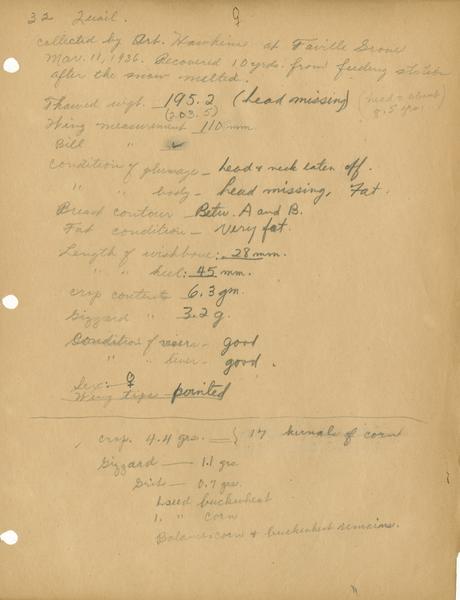 32 Quail. ♀
collected by Art. Hawkins at Faville Grove
Mar. 11, 1936. Recovered 10 yrds. from feeding station
after the snow melted.
Thawed wgt. 195.2 (head missing) (head & about 8.5 gms)
(203.5)
Wing measurement 110 mm.
Bill " ✓
Condition of plumage - head & neck eaten off.
" " body - head missing, Fat.
Breast contour - Betw. A and B.
Fat condition - Very fat.
Length of wishbone: 28 mm.
" " keel: 45 mm.
crop contents 6.3 gm.
Gizzard " 3.2 g.
Condition of viscera - good
" " liver - good.
Sex: ♀
Wing tips pointed
crop. 4.4 grs. = } 17 kernals of corn
Gizzard — 1.1 grs.
Grit — 0.7 grs.
1 seed buckwheat
1 " corn
Balance corn & buckwheat remains.